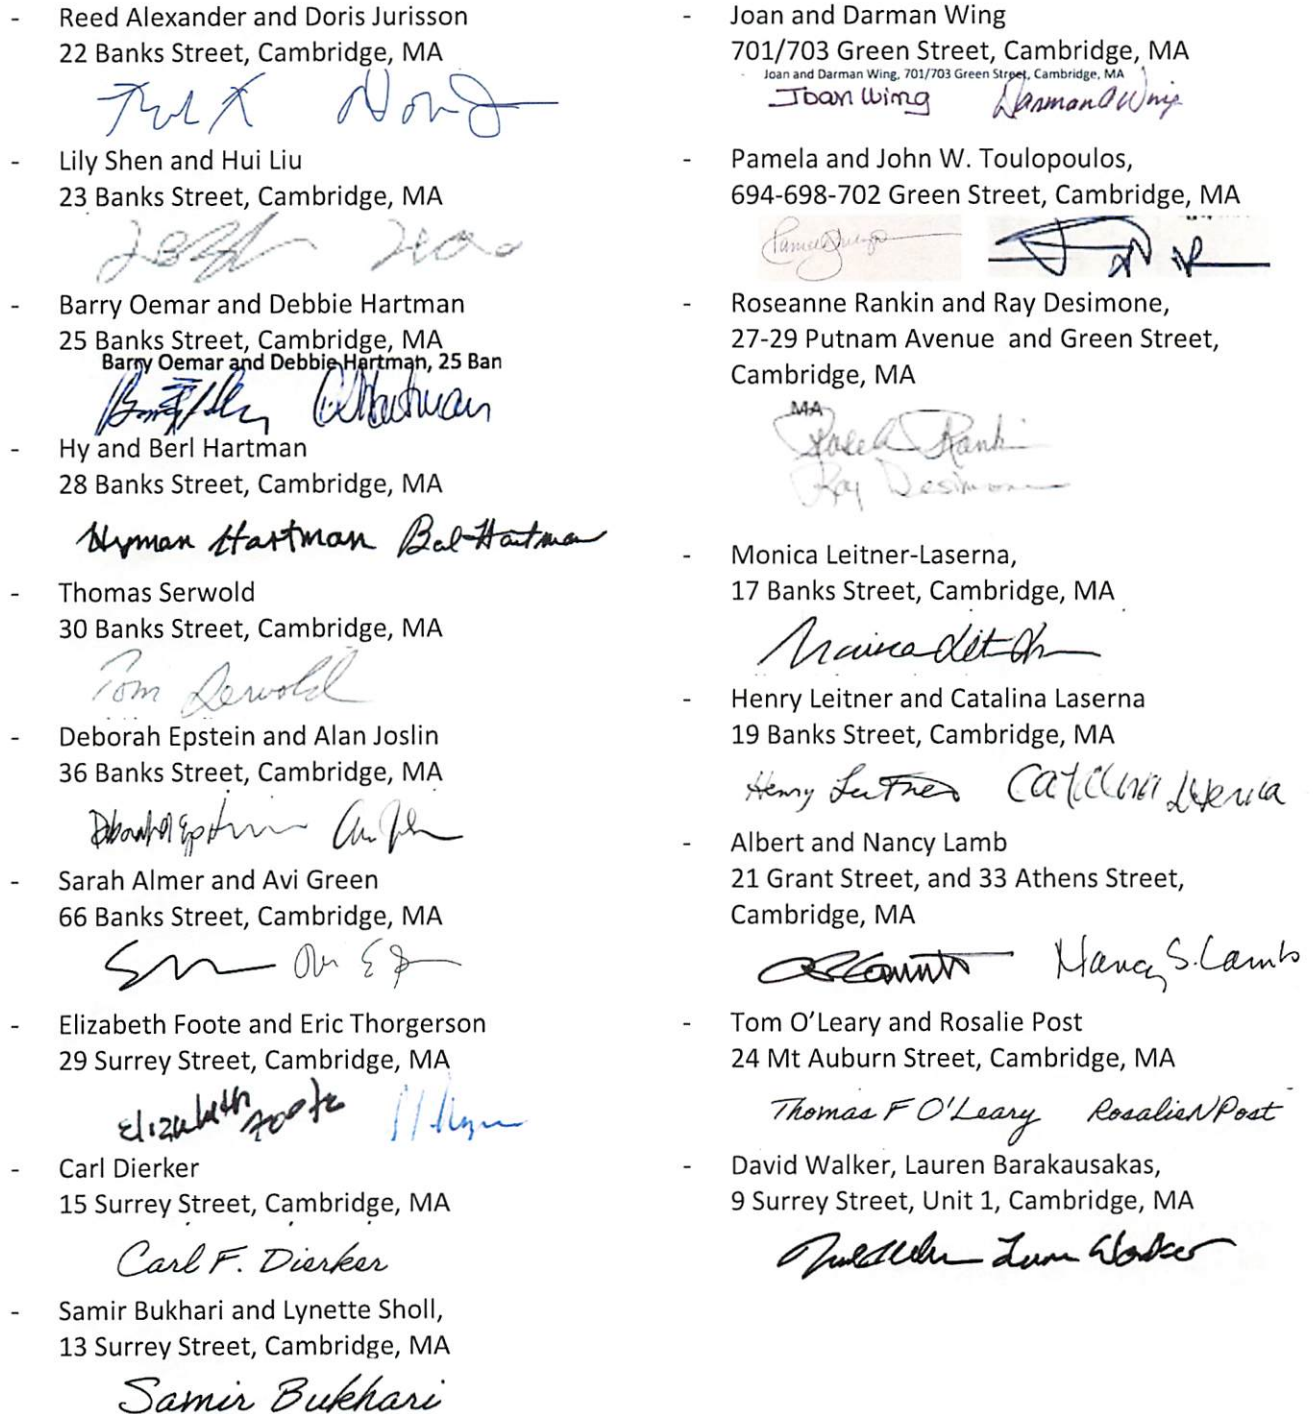 - Reed Alexander and Doris Jurisson
22 Banks Street, Cambridge, MA
- Lily Shen and Hui Liu
23 Banks Street, Cambridge, MA
- Barry Oemar and Debbie Hartman
25 Banks Street, Cambridge, MA
Barry Oemar and Debbie Hartman, 25 Ban
- Hy and Berl Hartman
28 Banks Street, Cambridge, MA
Hyman Hartman Berl Hartman
- Thomas Serwold
30 Banks Street, Cambridge, MA
Tom Serwold
- Deborah Epstein and Alan Joslin
36 Banks Street, Cambridge, MA
Deborah Epstein
- Sarah Almer and Avi Green
66 Banks Street, Cambridge, MA
- Elizabeth Foote and Eric Thorgerson
29 Surrey Street, Cambridge, MA
Elizabeth Foote
- Carl Dierker
15 Surrey Street, Cambridge, MA
Carl F. Dierker
- Samir Bukhari and Lynette Sholl,
13 Surrey Street, Cambridge, MA
Samir Bukhari
- Joan and Darman Wing
701/703 Green Street, Cambridge, MA
Joan and Darman Wing, 701/703 Green Street, Cambridge, MA
Joan Wing Darman A Wing
- Pamela and John W. Toulopoulos,
694-698-702 Green Street, Cambridge, MA
- Roseanne Rankin and Ray Desimone,
27-29 Putnam Avenue and Green Street,
Cambridge, MA
MA
Rankin
Ray Desimone
- Monica Leitner-Laserna,
17 Banks Street, Cambridge, MA
- Henry Leitner and Catalina Laserna
19 Banks Street, Cambridge, MA
Henry Leitner Catalina Laserna
- Albert and Nancy Lamb
21 Grant Street, and 33 Athens Street,
Cambridge, MA
Nancy S. Lamb
- Tom O'Leary and Rosalie Post
24 Mt Auburn Street, Cambridge, MA
Thomas F O'Leary Rosalie N Post
- David Walker, Lauren Barakausakas,
9 Surrey Street, Unit 1, Cambridge, MA